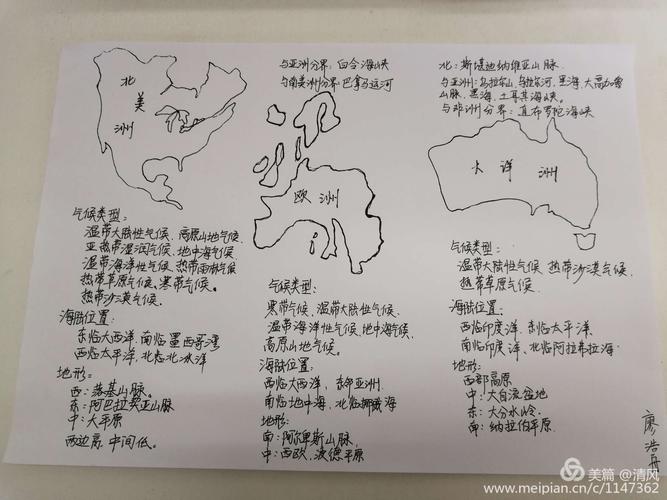 北
美
洲
气候类型:
温带大陆性气候、高原山地气候、
亚热带湿润气候、地中海气候
温带海洋性气候、热带雨林气候
热带草原气候、寒带气候。
热带沙漠气候
海陆位置:
东临大西洋,南临墨西哥湾
西临太平洋,北临北冰洋
地形:
西:落基山脉。
东:阿巴拉契亚山脉
中:大平原
两边高,中间低。
与亚洲分界,白令海峡
与南美洲分界,巴拿马运河
欧洲
气候类型:
寒带气候、温带大陆性气候
温带海洋性气候、地中海气候
高原山地气候。
海陆位置:
西临大西洋,东邻亚洲
南临地中海,北临挪威海
地形:
南:阿尔卑斯山脉
中:西欧、波德平原
北:斯堪迪纳维亚山脉
与亚洲:乌拉尔山、乌拉尔河、里海、大高加索
山脉、黑海、土耳其海峡。
与非洲分界:直布罗陀海峡
大洋洲
气候类型:
温带大陆性气候 热带沙漠气候
热带草原气候
海陆位置:
西临印度洋,东临太平洋
南临印度洋、北临阿拉弗拉海
地形:
西部高原
中:大自流盆地
东:大分水岭
南:纳拉伯平原
廖浩冉
美篇@清风
www.meipian.cn/c/1147362